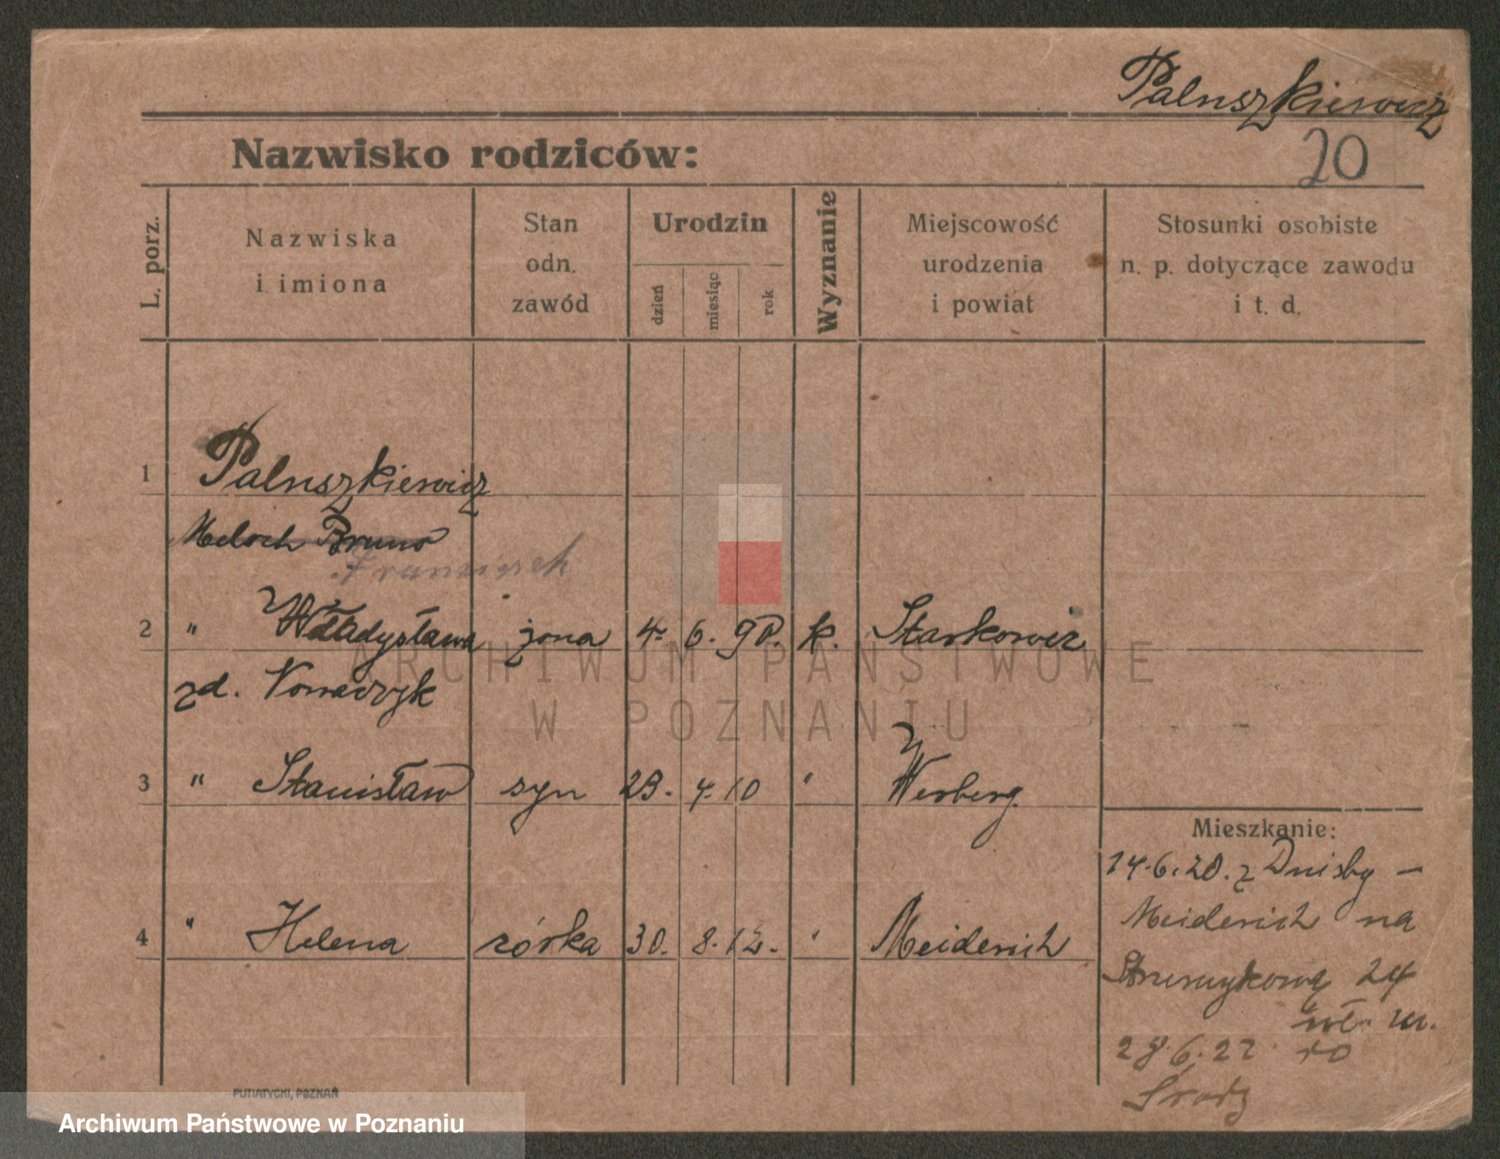 Paluszkiewicz
20
Nazwisko rodziców:
L. porz.
Nazwiska
i imiona
Stan
odn.
zawód
Urodzin
dzień
miesiąc
rok
Wyznanie
Miejscowość
urodzenia
i powiat
Stosunki osobiste
n. p. dotyczące zawodu
i t. d.
1 Paluszkiewicz
Meloch Bruno
Franciszek
2 " Władysława żona 4. 6. 90. k.
zd. Nowaczyk
3 " Stanisław syn 23. 4. 10 " Werberg.
4 " Helena córka 30. 8. 12. " Meiderich
Mieszkanie:
14.6.20. z Duisbg –
Meiderich na
24
28.6.22 do
Środy
PUTIATYCKI, POZNAŃ
ARCHIWUM PAŃSTWOWE
W POZNANIU
Archiwum Państwowe w Poznaniu